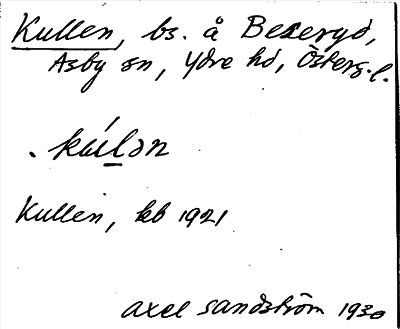 Kullen, bs. å Bexeryd,
Asby sn, Ydre hd, Österg. l.
. kúlən
Kullen, kb 1921
Axel Sandström 1930